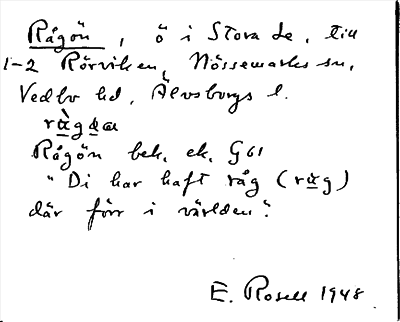 Rågön, ö i Stora Le, till
1-2 Rörviken, Nössemarks sn,
Vedbo hd, Älvsborgs l.
Rågön bek. ek. G61
"Di har haft råg (
där förr i världen".
E. Rosell 1948